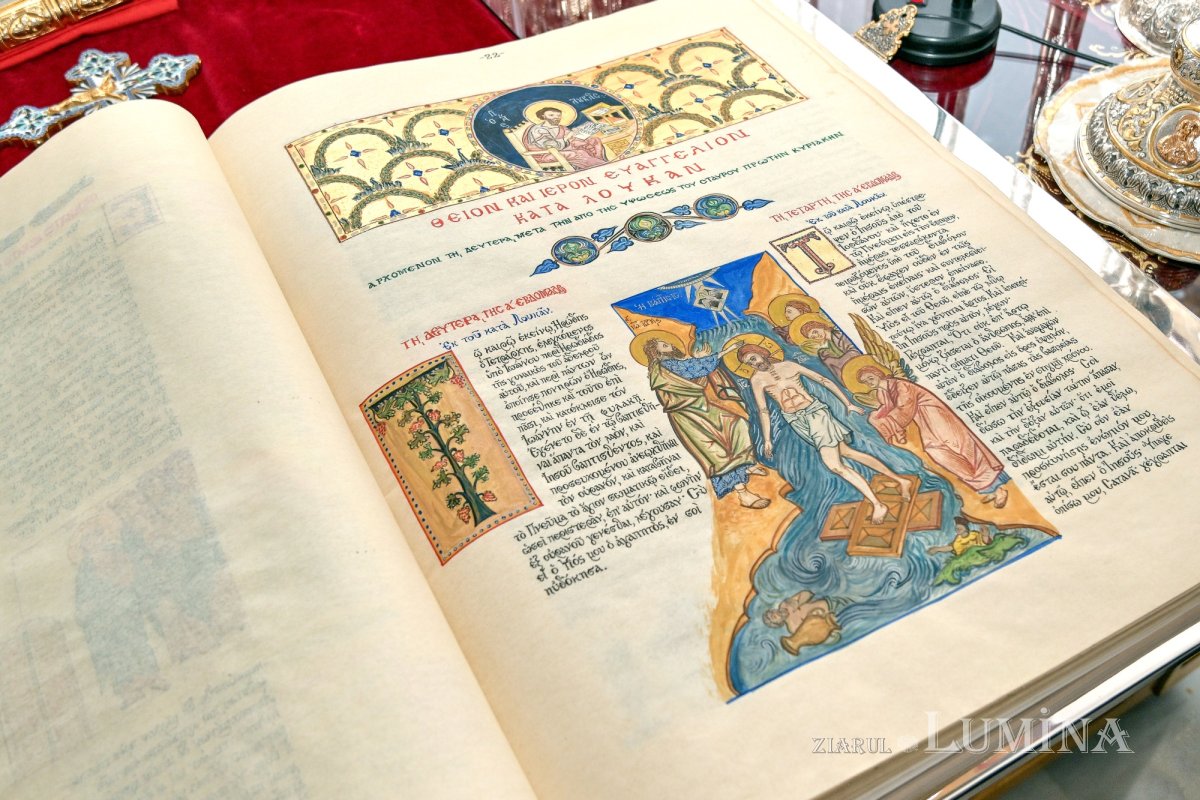 -88-
Ο ΑΓ ΛΟΥΚΑΣ
ΘΕΙΟΝ ΚΑΙ ΙΕΡΟΝ ΕΥΑΓΓΕΛΙΟΝ
ΚΑΤΑ ΛΟΥΚΑΝ
ΑΡΧΟΜΕΝΟΝ ΤΗ, ΔΕΥΤΕΡΑ, ΜΕΤΑ ΤΗΝ ΑΠΟ ΤΗΣ ΥΨΩΣΕΩΣ ΤΟΥ ΣΤΑΥΡΟΥ ΠΡΩΤΗΝ ΚΥΡΙΑΚΗΝ
ΤΗ ΔΕΥΤΕΡΑ, ΤΗΣ Α' ΕΒΔΟΜΑΔΟΣ
Ἐκ τοῦ κατὰ Λουκᾶν.
ῷ καιρῷ ἐκείνῳ, Ἡρώδης
ὁ Τετράρχης, ἐλεγχόμενος
ὑπὸ Ἰωάννου περὶ Ἡρωδιάδος
τῆς γυναικὸς τοῦ ἀδελφοῦ
αὐτοῦ, καὶ περὶ πάντων ὧν
ἐποίησε πονηρῶν ὁ Ἡρώδης,
προσέθηκε καὶ τοῦτο ἐπὶ
πᾶσι, καὶ κατέκλεισε τὸν
Ἰωάννην ἐν τῇ φυλακῇ.
Ἐγένετο δὲ ἐν τῷ βαπτισθῆ-
ναι ἅπαντα τὸν λαόν, καὶ
Ἰησοῦ βαπτισθέντος, καὶ
προσευχομένου ἀνεῳχθῆναι
τὸν οὐρανόν, καὶ καταβῆναι
τὸ Πνεῦμα τὸ ἅγιον σωματικῷ εἴδει
ὡσεὶ περιστερὰν ἐπ' αὐτόν· καὶ φωνὴν
ἐξ οὐρανοῦ γενέσθαι, λέγουσαν· Σὺ
εἶ ὁ Υἱός μου ὁ ἀγαπητός, ἐν σοὶ
ηὐδόκησα.
Ἡ ΒΑΠΤΙΣΙΣ
ΤΗ, ΤΕΤΑΡΤΗ, ΤΗΣ Α' ΕΒΔΟΜΑΔΟΣ
Ἐκ τοῦ κατὰ Λουκᾶν.
Τῷ καιρῷ ἐκείνῳ, ὑπέστρε-
ψεν ὁ Ἰησοῦς ἀπὸ τοῦ
Ἰορδάνου· καὶ ἤγετο ἐν
τῷ Πνεύματι εἰς τὴν ἔρημον,
ἡμέρας τεσσαράκοντα
πειραζόμενος ὑπὸ τοῦ διαβόλου·
καὶ οὐκ ἔφαγεν οὐδὲν ἐν ταῖς
ἡμέραις ἐκείναις· καὶ συντελεσθει-
σῶν αὐτῶν, ὕστερον ἐπείνασε.
Καὶ εἶπεν αὐτῷ ὁ διάβολος· Εἰ
Υἱὸς εἶ τοῦ Θεοῦ, εἰπὲ τῷ λίθῳ
τούτῳ ἵνα γένηται ἄρτος. Καὶ ἀπεκρί-
θη Ἰησοῦς πρὸς αὐτόν, λέγων·
Γέγραπται· Ὅτι οὐκ ἐπ' ἄρτῳ
μόνῳ ζήσεται ὁ ἄνθρωπος, ἀλλ' ἐπὶ
παντὶ ῥήματι Θεοῦ. Καὶ ἀναγαγὼν
αὐτὸν ὁ διάβολος εἰς ὄρος ὑψηλόν,
ἔδειξεν αὐτῷ πάσας τὰς βασιλείας
τῆς οἰκουμένης ἐν στιγμῇ χρόνου.
Καὶ εἶπεν αὐτῷ ὁ διάβολος· Σοὶ
δώσω τὴν ἐξουσίαν ταύτην ἅπασαν
καὶ τὴν δόξαν αὐτῶν· ὅτι ἐμοὶ
παραδέδοται, καὶ ᾧ ἐὰν θέλω,
δίδωμι αὐτήν. Σὺ οὖν ἐὰν
προσκυνήσῃς ἐνώπιόν μου,
ἔσται σου πάντα. Καὶ ἀποκριθεὶς
αὐτῷ, εἶπεν ὁ Ἰησοῦς· Ὕπαγε
ὀπίσω μου, Σατανᾶ· γέγραπται
ZIARUL LUMINA